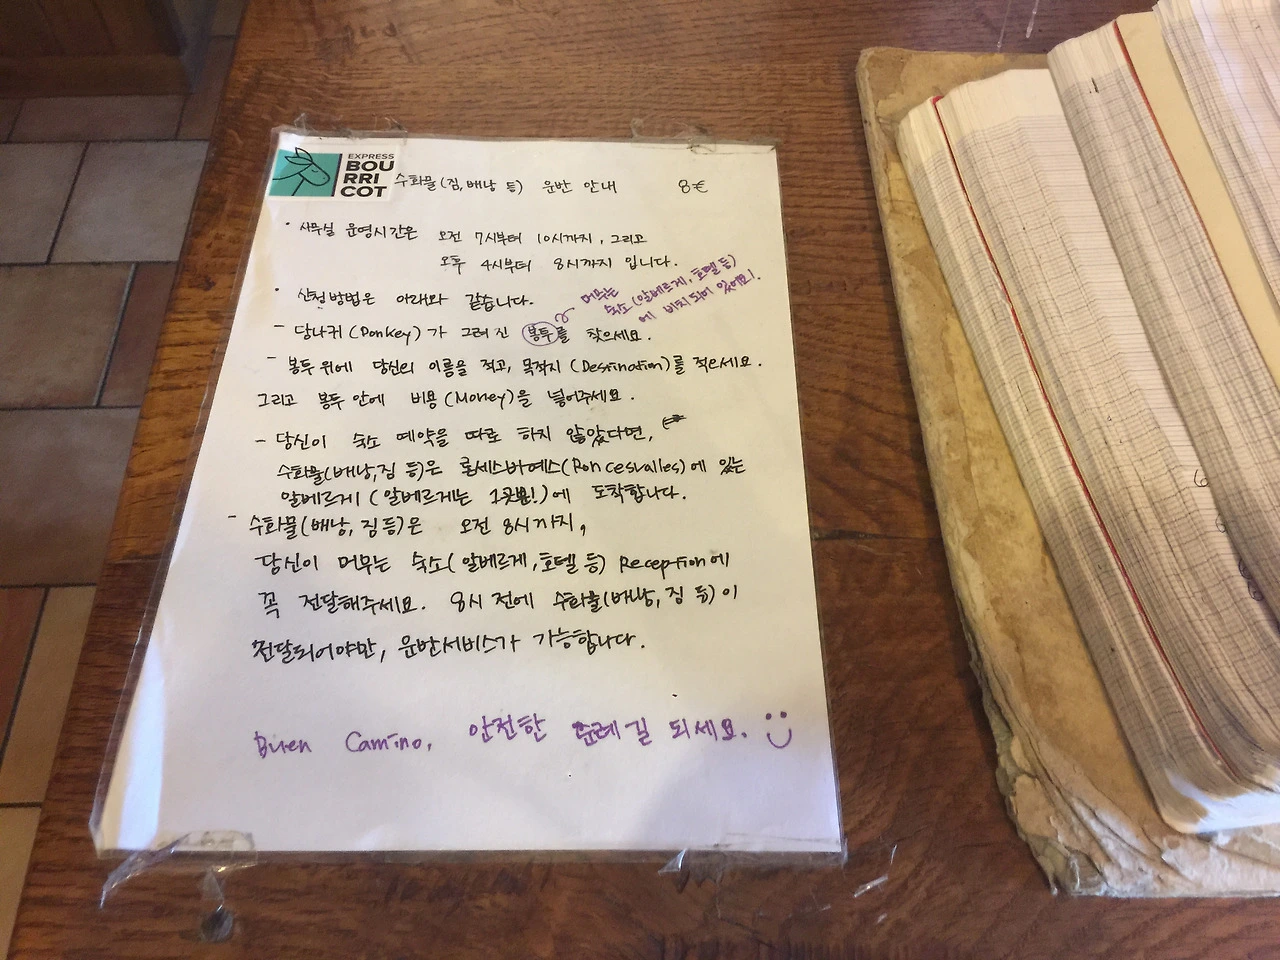 EXPRESS
BOU
RRI
COT
수화물(짐,배낭 등) 운반 안내 8€
· 사무실 운영시간은 오전 7시부터 10시까지, 그리고
오후 4시부터 8시까지 입니다.
· 신청방법은 아래와 같습니다.
머무는
숙소(알베르게, 호텔 등)
에 비치되어 있어요!
- 당나귀(Donkey)가 그려진 봉투를 찾으세요.
- 봉투 위에 당신의 이름을 적고, 목적지(Destination)를 적으세요.
그리고 봉투 안에 비용(Money)을 넣어주세요.
- 당신이 숙소 예약을 따로 하지 않았다면,
수화물(배낭,짐 등)은 론세스바예스(Roncesvalles)에 있는
알베르게(알베르게는 1곳뿐!)에 도착합니다.
- 수화물(배낭, 짐 등)은 오전 8시까지,
당신이 머무는 숙소(알베르게,호텔 등) Reception에
꼭 전달해주세요. 8시 전에 수화물(배낭, 짐 등)이
전달되어야만, 운반서비스가 가능합니다.
Buen Camino, 안전한 순례길 되세요.